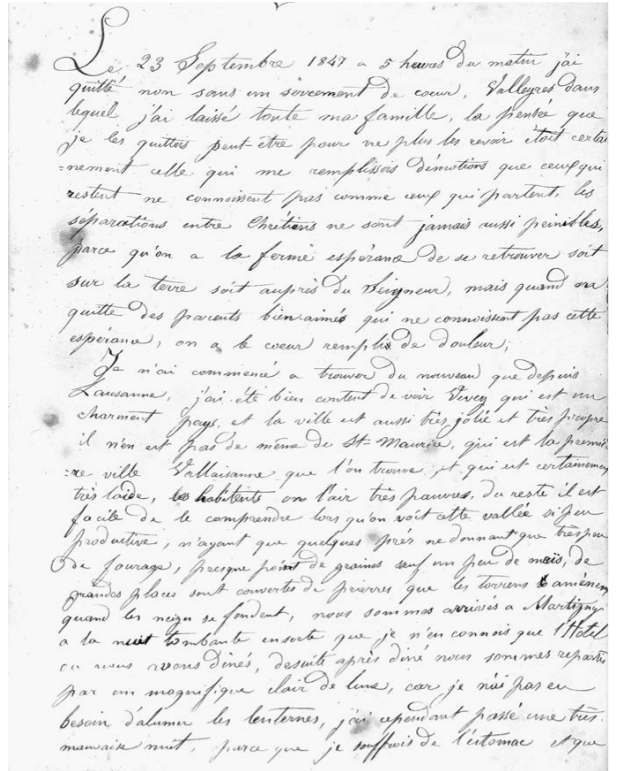 Le 23 Septembre 1847 a 5 heures du matin j'ai
quitté non sans un serrement de coeur, Valleyres dans
lequel j'ai laissé toute ma famille, la pensée que
je les quittois peut être pour ne plus les revoir étoit certai
=nement celle qui me remplissois d'émotions que ceux qui
restent ne connoissent pas comme ceux qui partent, les
séparations entre Chrétiens ne sont jamais aussi peinibles,
parce qu'on a la ferme espérance de se retrouver soit
sur la terre soit auprès du Seigneur, mais quand on
quitte des parents bien-aimés qui ne connoissent pas cette
espérance, on a le coeur remplis de douleur;
Je n'ai commencé a trouver du nouveau que depuis
Lausanne, j'ai été bien content de voir Vevey qui est un
charment pays, et la ville est aussi très jolie et très propre
il n'en est pas de même de St-Maurice, qui est la premiè
=re ville Vallaisanne que l'on trouve, et qui est certainement
très laide, les habitents on l'air très pauvres, du reste il est
facile de le comprendre lors qu'on voit cette vallée si peu
productive, n'ayant que quelques prés ne donnant que très peu
de fourage, presque point de graines seuf un peu de maïs, de
grandes places sont couvertes de pierres que les torrens amènent
quand les neiges se fondent, nous sommes arrivés a Martigny
a la nuit tombante ensorte que je n'en connois que l'Hôtel
ou nous avons dinés, desuite après diné nous sommes repartis
par un magnifique clair de lune, car je n'ai pas eu
besoin d'alumer les lenternes, j'ai cependant passé une très
mauvaise nuit, parce que je souffrois de l'estomac et que